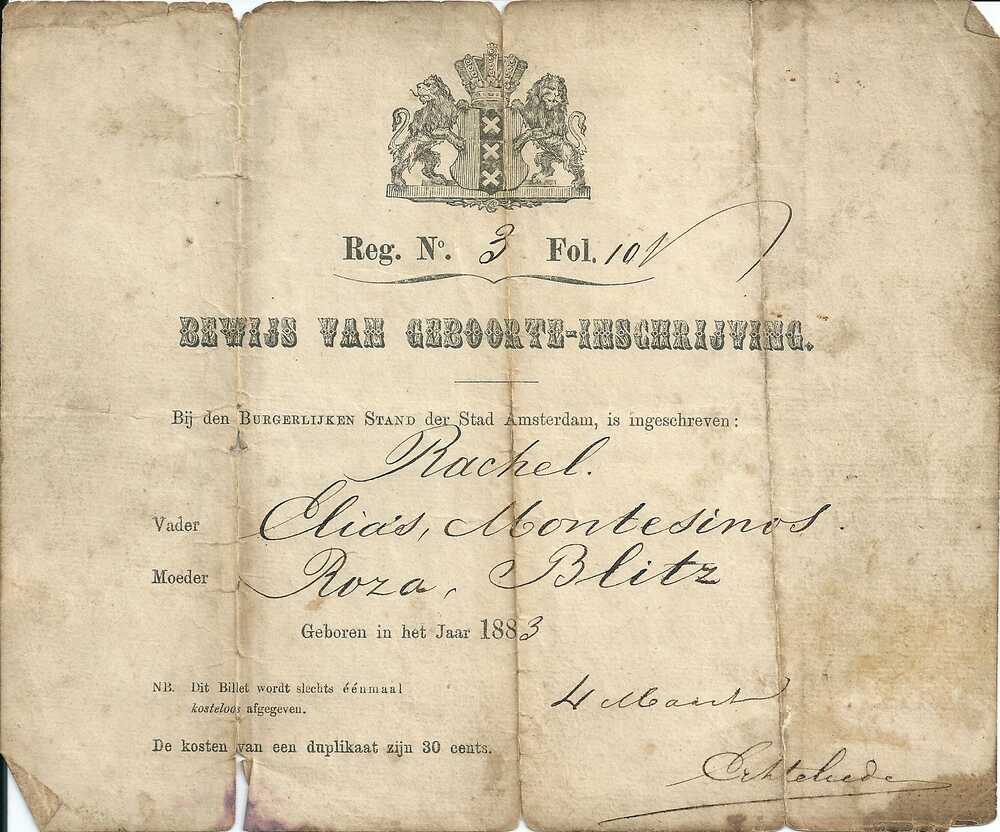 Reg. No. 3 Fol. 10V
BEWIJS VAN GEBOORTE-INSCHRIJVING.
Bij den BURGERLIJKEN STAND der Stad Amsterdam, is ingeschreven:
Rachel.
Vader Elias, Montesinos.
Moeder Roza, Blitz
Geboren in het Jaar 1883
NB. Dit Billet wordt slechts éénmaal
kosteloos afgegeven.
4 Maart
De kosten van een duplikaat zijn 30 cents.